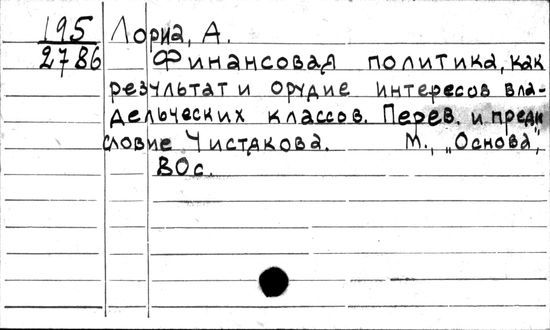 195 Лориа, А.
2786 Финансовая политика, как
результат и орудие интересов вла-
дельческих классов. Перев. и преди
словие Чистякова. М., „Основа",
80с.